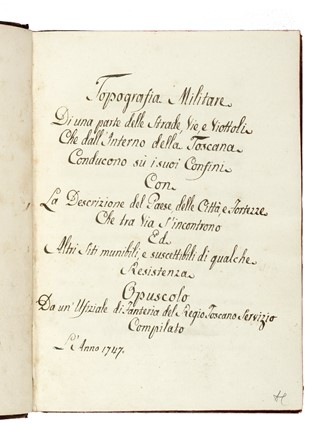 Topografia Militare
Di una parte delle Strade, Vie, e Viottoli
Che dall'Interno della Toscana
Conducono su i suoi Confini
Con
La Descrizione del Paese, delle Città, e Fortezze
Che tra Via s'incontrono
Ed
Altri Siti munibili, e suscettibili di qualche
Resistenza
Opuscolo
Da un' Ufiziale di Fanteria del Regio Toscano Servizio
Compilato
L'Anno 1747.